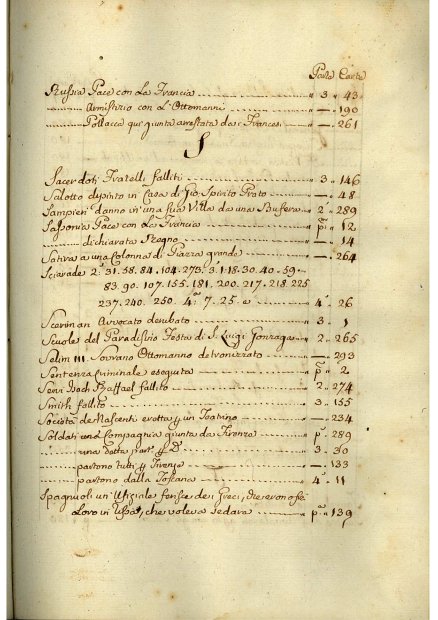 Parte Carte
Russia Pace con La Francia " 3 " 43
Armistizio con L'Ottomanni " — " 190
Pollacca qui giunta arrestata da Francesi " — " 261
S
Sacerdoti Fratelli falliti " 3 " 146
Salotto dipinto in Casa di Gio Spirito Prato " — " 48
Sampieri danno in una sua Villa da una Bufera " 2 " 289
Sassonia Pace con La Francia " pª " 12
dichiarata Regno " — " 14
Satira a una Colonna di Piazza grande " — " 264
Sciarade 2ª 31. 58. 84. 104. 273. 3ª 1. 18. 30. 40. 59.
83. 90. 107. 155. 181. 200. 217. 218. 225
237. 240. 250. 4ª 7. 25. e " 4ª " 26
Sceriman Avvocato derubato " 3 " 1
Scuole del Paradisino Festa di S. Luigi Gonzaga " 2 " 265
Selim III Sovrano Ottomanno detronizzato " — " 293
Sentenza Criminale eseguita " pª " 2
Raffael fallito " 2 " 274
Smith fallito " 3 " 155
Società de Nascenti eretta p un Teatrino " — " 234
Soldati una Compagnia giunta da Firenze " pª " 289
una detta part. p D.º " 3 " 30
partono tutti p Firenze " — " 133
partono dalla Toscana " 4ª " 11
Spagnuoli un Ufiziale de Greci, dieron
Loro in , che voleva sedare " pª " 139